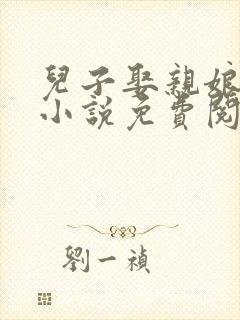 兒子娶親娘
小說免費閱
劉一禎